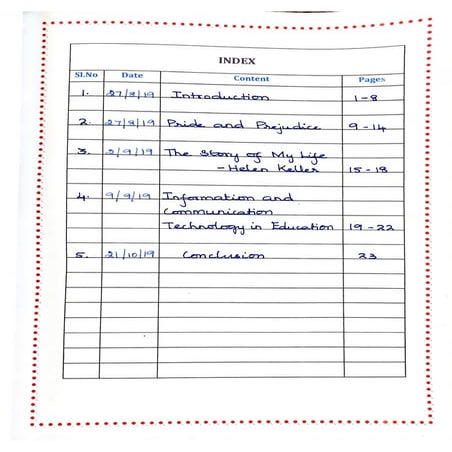 INDEX
Sl.No Date Content Pages
1. 27/8/19 Introduction 1-8
2. 27/8/19 Pride and Prejudice 9-14
3. 2/9/19 The Story of My Life
- Helen Keller 15-18
4. 9/9/19 Information and
Communication
Technology in Education 19-22
5. 21/10/19 Conclusion 23